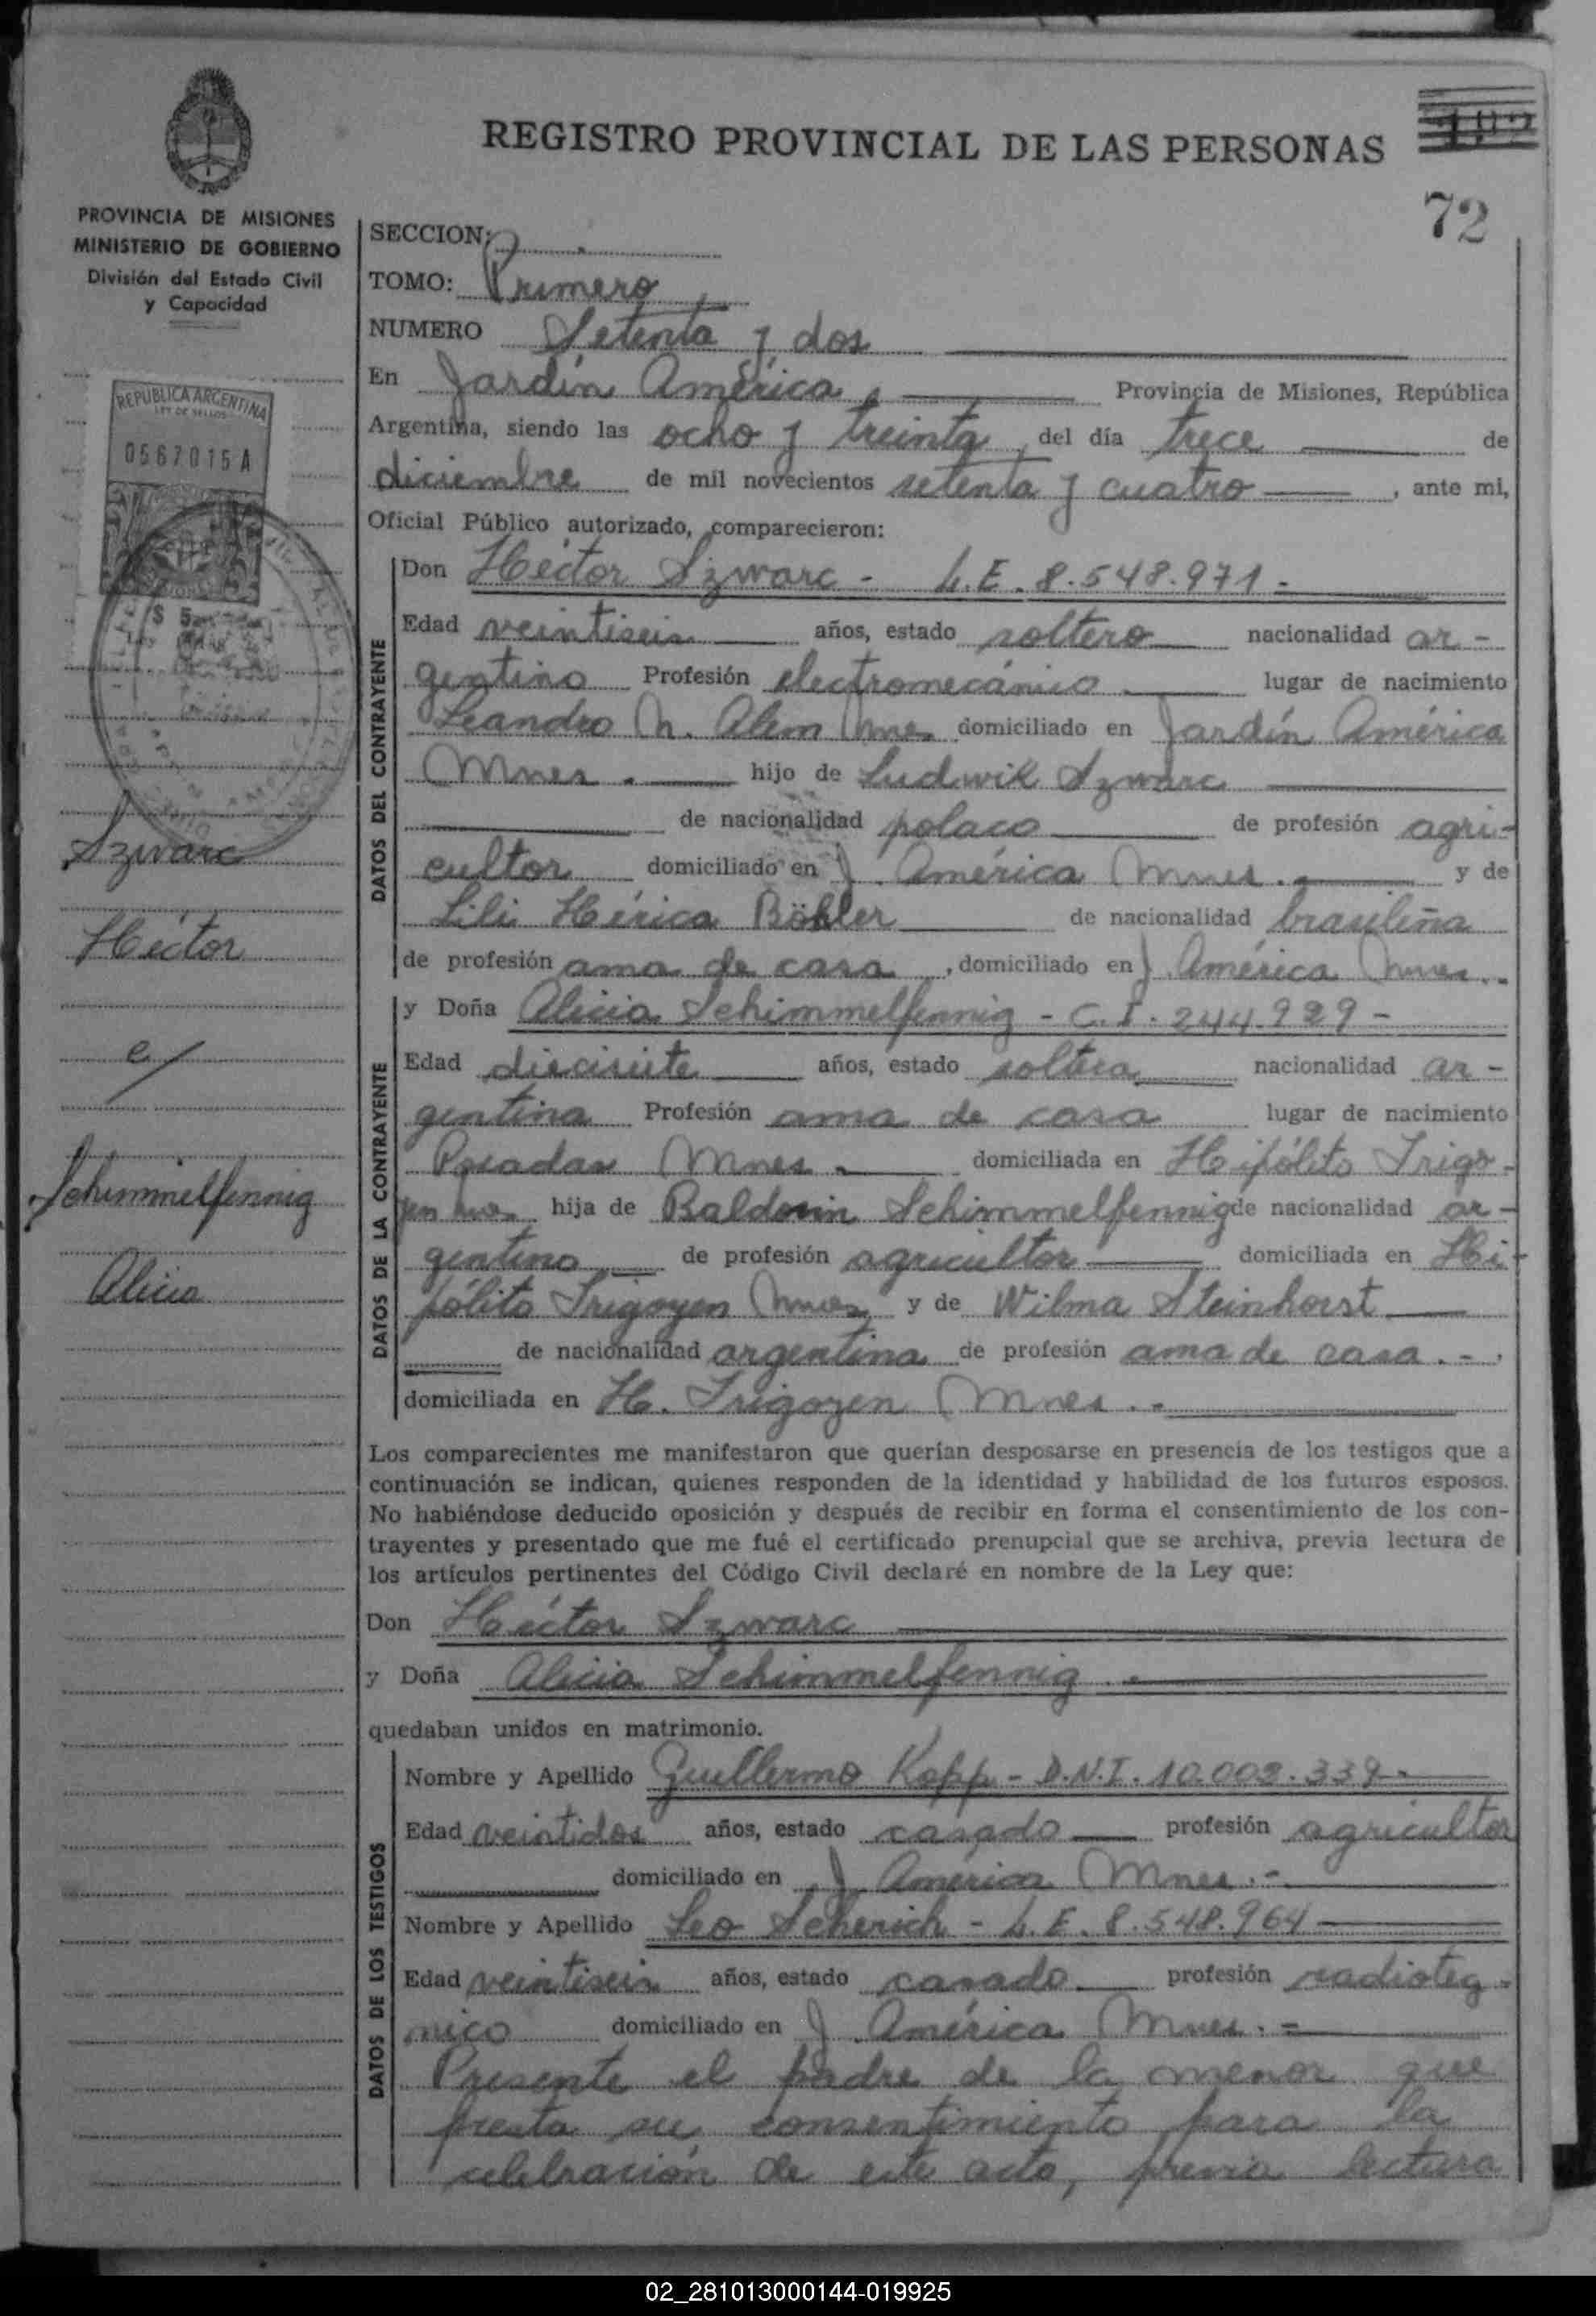 REGISTRO PROVINCIAL DE LAS PERSONAS
72
PROVINCIA DE MISIONES
MINISTERIO DE GOBIERNO
División del Estado Civil
y Capacidad
REPUBLICA ARGENTINA
LEY DE SELLOS
0567015 A
$ 5
Szwarc
Héctor
c/
Schimmelfennig
Alicia
SECCION:
TOMO: Primero
NUMERO Setenta y dos
En Jardín América, Provincia de Misiones, República
Argentina, siendo las ocho y treinta del día trece de
diciembre de mil novecientos setenta y cuatro, ante mi,
Oficial Público autorizado, comparecieron:
DATOS DEL CONTRAYENTE
Don Héctor Szwarc - L.E. 8.548.971 -
Edad veintiseis años, estado soltero nacionalidad ar-
gentino Profesión electromecánico lugar de nacimiento
Leandro N. Alem Mnes domiciliado en Jardín América
Mnes. hijo de Ludwik Szwarc
de nacionalidad polaco de profesión agri-
cultor domiciliado en J. América Mnes. y de
Lili Hérica Böhler de nacionalidad brasileña
de profesión ama de casa, domiciliado en J. América Mnes.
DATOS DE LA CONTRAYENTE
y Doña Alicia Schimmelfennig - C.I. 244.929 -
Edad diecisiete años, estado soltera nacionalidad ar-
gentina Profesión ama de casa lugar de nacimiento
Posadas Mnes. domiciliada en Hipólito Irigo-
yen Mnes. hija de Baldovin Schimmelfennig de nacionalidad ar-
gentino de profesión agricultor domiciliada en Hi-
pólito Irigoyen Mnes y de Wilma Steinhorst
de nacionalidad argentina de profesión ama de casa.-.
domiciliada en H. Irigoyen Mnes.-
Los comparecientes me manifestaron que querían desposarse en presencia de los testigos que a
continuación se indican, quienes responden de la identidad y habilidad de los futuros esposos.
No habiéndose deducido oposición y después de recibir en forma el consentimiento de los con-
trayentes y presentado que me fué el certificado prenupcial que se archiva, previa lectura de
los artículos pertinentes del Código Civil declaré en nombre de la Ley que:
Don Héctor Szwarc
y Doña Alicia Schimmelfennig.
quedaban unidos en matrimonio.
DATOS DE LOS TESTIGOS
Nombre y Apellido Guillermo Kopp - D.N.I. 10.002.339-
Edad veintidos años, estado casado profesión agricultor
domiciliado en J. América Mnes.-
Nombre y Apellido Leo Scherich - L.E. 8.548.964
Edad veintiseis años, estado casado profesión radioteg-
nico domiciliado en J. América Mnes.-
Presente el padre de la menor que
presta su consentimiento para la
celebración de este acto, previa lectura
02_281013000144-019925